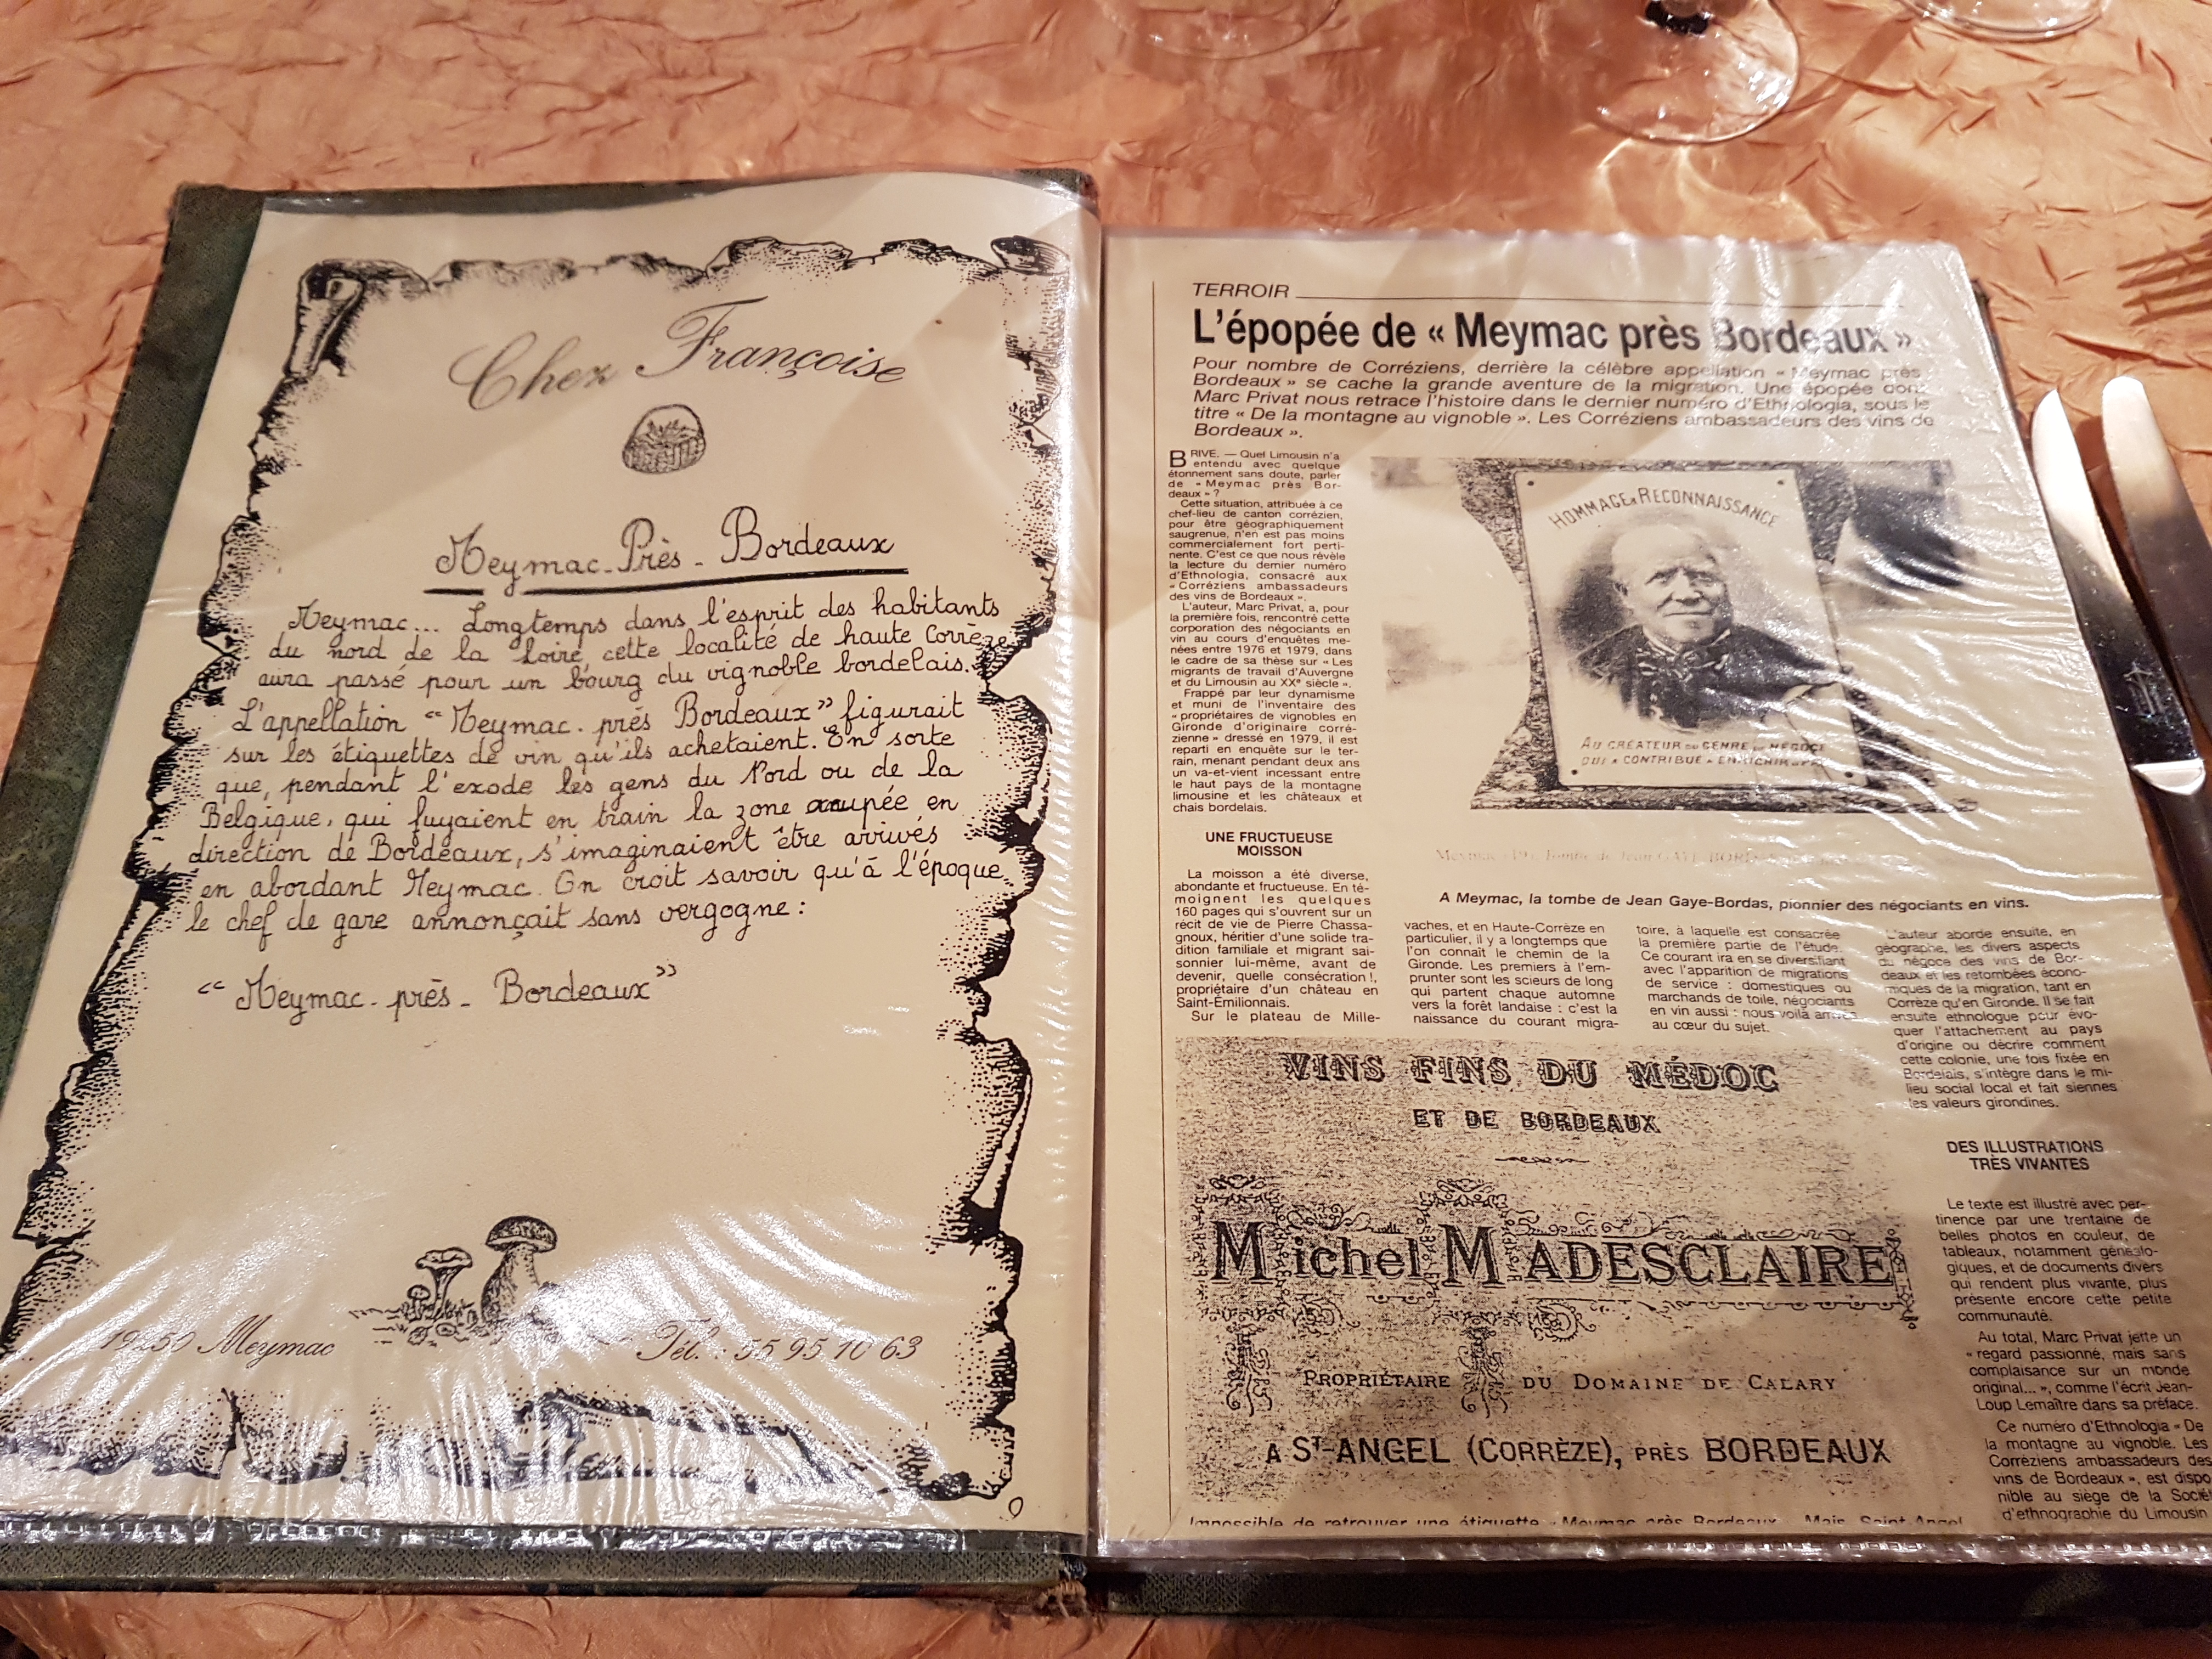 Chez Françoise
Meymac-Près-Bordeaux
Meymac... Longtemps dans l'esprit des habitants
du nord de la Loire, cette localité de haute Corrèze
aura passé pour un bourg du vignoble bordelais.
L'appellation "Meymac-près Bordeaux" figurait
sur les étiquettes de vin qu'ils achetaient. En sorte
que, pendant l'exode les gens du Nord ou de la
Belgique, qui fuyaient en train la zone occupée en
direction de Bordeaux, s'imaginaient être arrivés
en abordant Meymac. On croit savoir qu'à l'époque,
le chef de gare annonçait sans vergogne :
"Meymac-près-Bordeaux"
19250 Meymac
Tél. : 55 95 10 63
TERROIR
L'épopée de « Meymac près Bordeaux »
Pour nombre de Corréziens, derrière la célèbre appellation « Meymac près
Bordeaux » se cache la grande aventure de la migration. Une épopée dont
Marc Privat nous retrace l'histoire dans le dernier numéro d'Ethnologia, sous le
titre « De la montagne au vignoble ». Les Corréziens ambassadeurs des vins de
Bordeaux ».
BRIVE. — Quel Limousin n'a
entendu avec quelque
étonnement sans doute, parler
de « Meymac près Bor-
deaux » ?
Cette situation, attribuée à ce
chef-lieu de canton corrézien,
pour être géographiquement
saugrenue, n'en est pas moins
commercialement fort perti-
nente. C'est ce que nous révèle
la lecture du dernier numéro
d'Ethnologia, consacré aux
« Corréziens ambassadeurs
des vins de Bordeaux ».
L'auteur, Marc Privat, a, pour
la première fois, rencontré cette
corporation des négociants en
vin au cours d'enquêtes me-
nées entre 1976 et 1979, dans
le cadre de sa thèse sur « Les
migrants de travail d'Auvergne
et du Limousin au XXe siècle ».
Frappé par leur dynamisme
et muni de l'inventaire des
« propriétaires de vignobles en
Gironde d'originaire corré-
zienne » dressé en 1979, il est
reparti en enquête sur le ter-
rain, menant pendant deux ans
un va-et-vient incessant entre
le haut pays de la montagne
limousine et les châteaux et
chais bordelais.
UNE FRUCTUEUSE
MOISSON
La moisson a été diverse,
abondante et fructueuse. En té-
moignent les quelques
160 pages qui s'ouvrent sur un
récit de vie de Pierre Chassa-
gnoux, héritier d'une solide tra-
dition familiale et migrant sai-
sonnier lui-même, avant de
devenir, quelle consécration !,
propriétaire d'un château en
Saint-Émilionnais.
Sur le plateau de Mille-
HOMMAGE ET RECONNAISSANCE
AU CRÉATEUR DU GENRE DE NÉGOCE
QUI A CONTRIBUÉ A ENRICHIR
A Meymac, la tombe de Jean Gaye-Bordas, pionnier des négociants en vins.
vaches, et en Haute-Corrèze en
particulier, il y a longtemps que
l'on connaît le chemin de la
Gironde. Les premiers à l'em-
prunter sont les scieurs de long
qui partent chaque automne
vers la forêt landaise : c'est la
naissance du courant migra-
toire, à laquelle est consacrée
la première partie de l'étude.
Ce courant ira en se diversifiant
avec l'apparition de migrations
de service : domestiques ou
marchands de toile, négociants
en vin aussi : nous voilà arrivés
au cœur du sujet.
L'auteur aborde ensuite, en
géographe, les divers aspects
du négoce des vins de Bor-
deaux et les retombées écono-
miques de la migration, tant en
Corrèze qu'en Gironde. Il se fait
ensuite ethnologue pour évo-
quer l'attachement au pays
d'origine ou décrire comment
cette colonie, une fois fixée en
Bordelais, s'intègre dans le mi-
lieu social local et fait siennes
les valeurs girondines.
DES ILLUSTRATIONS
TRÈS VIVANTES
Le texte est illustré avec per-
tinence par une trentaine de
belles photos en couleur, de
tableaux, notamment généalo-
giques, et de documents divers
qui rendent plus vivante, plus
présente encore cette petite
communauté.
Au total, Marc Privat jette un
« regard passionné, mais sans
complaisance sur un monde
original... », comme l'écrit Jean-
Loup Lemaître dans sa préface.
Ce numéro d'Ethnologia « De
la montagne au vignoble. Les
Corréziens ambassadeurs des
vins de Bordeaux », est dispo
nible au siège de la Socié
d'ethnographie du Limousin
VINS FINS DU MÉDOC
ET DE BORDEAUX
Michel MADESCLAIRE
PROPRIÉTAIRE DU DOMAINE DE CALARY
A ST-ANGEL (CORRÈZE), PRÈS BORDEAUX
Impossible de retrouver une étiquette « Meymac près Bordeaux ». Mais Saint-Angel